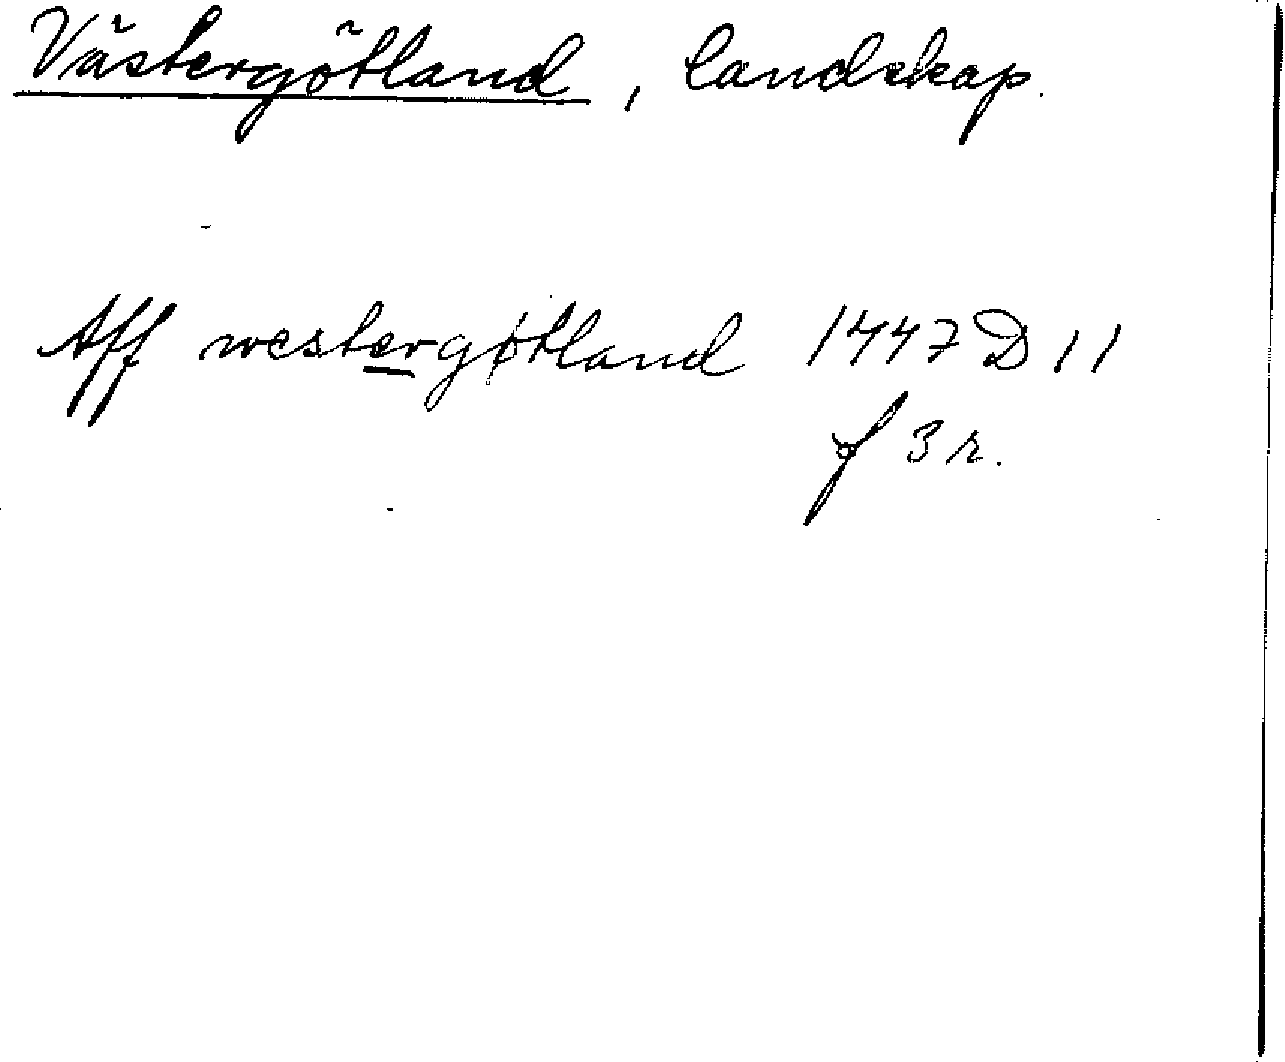 Västergötland, landskap.
Aff westergøtland 1447 D 11
f 3 r.